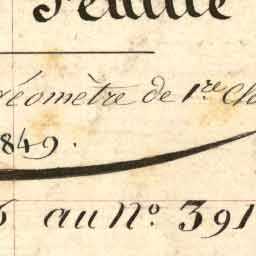 Feuille
Géomètre de 1.re Cl
1849.
6 au N.o 391